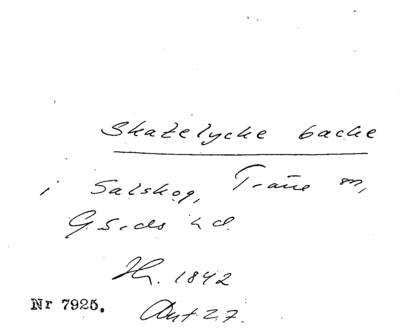 Skatelycke backe
i Salskog, Träne sn,
G S:ds hd.
Hr. 1842
Nr 7925.
Avt 27.